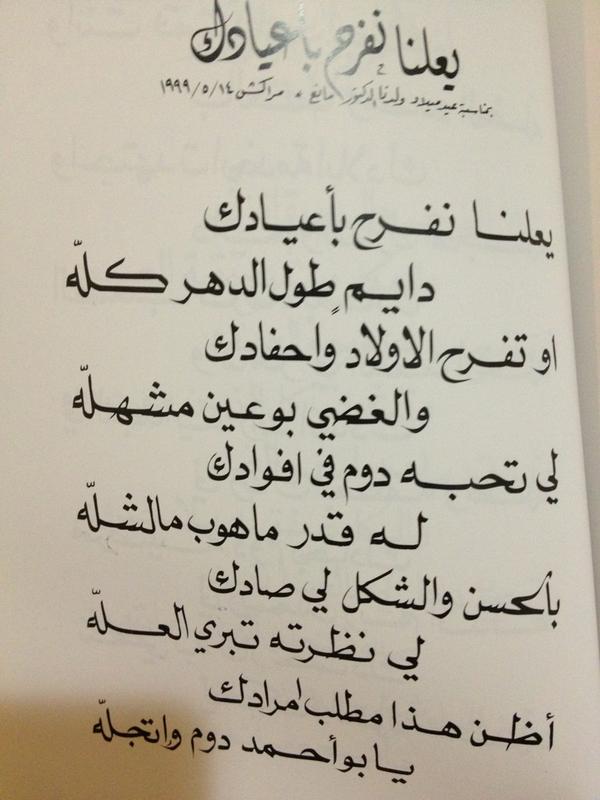 يعلنا نفرح بأعيادك
بمناسبة عيد ميلاد ولدنا الدكتور مانع • مراكش ١٩٩٩/٥/١٤
يعلنا نفرح بأعيادك
دايم طول الدهر كلّه
او تفرح الاولاد واحفادك
والغضي بوعين مشهلّه
لي تحبه دوم في افوادك
له قدر ماهوب مالشلّه
بالحسن والشكل لي صادك
لي نظرته تبري العلّه
أظن هذا مطلب امرادك
يا بوأحمد دوم واتجلّه